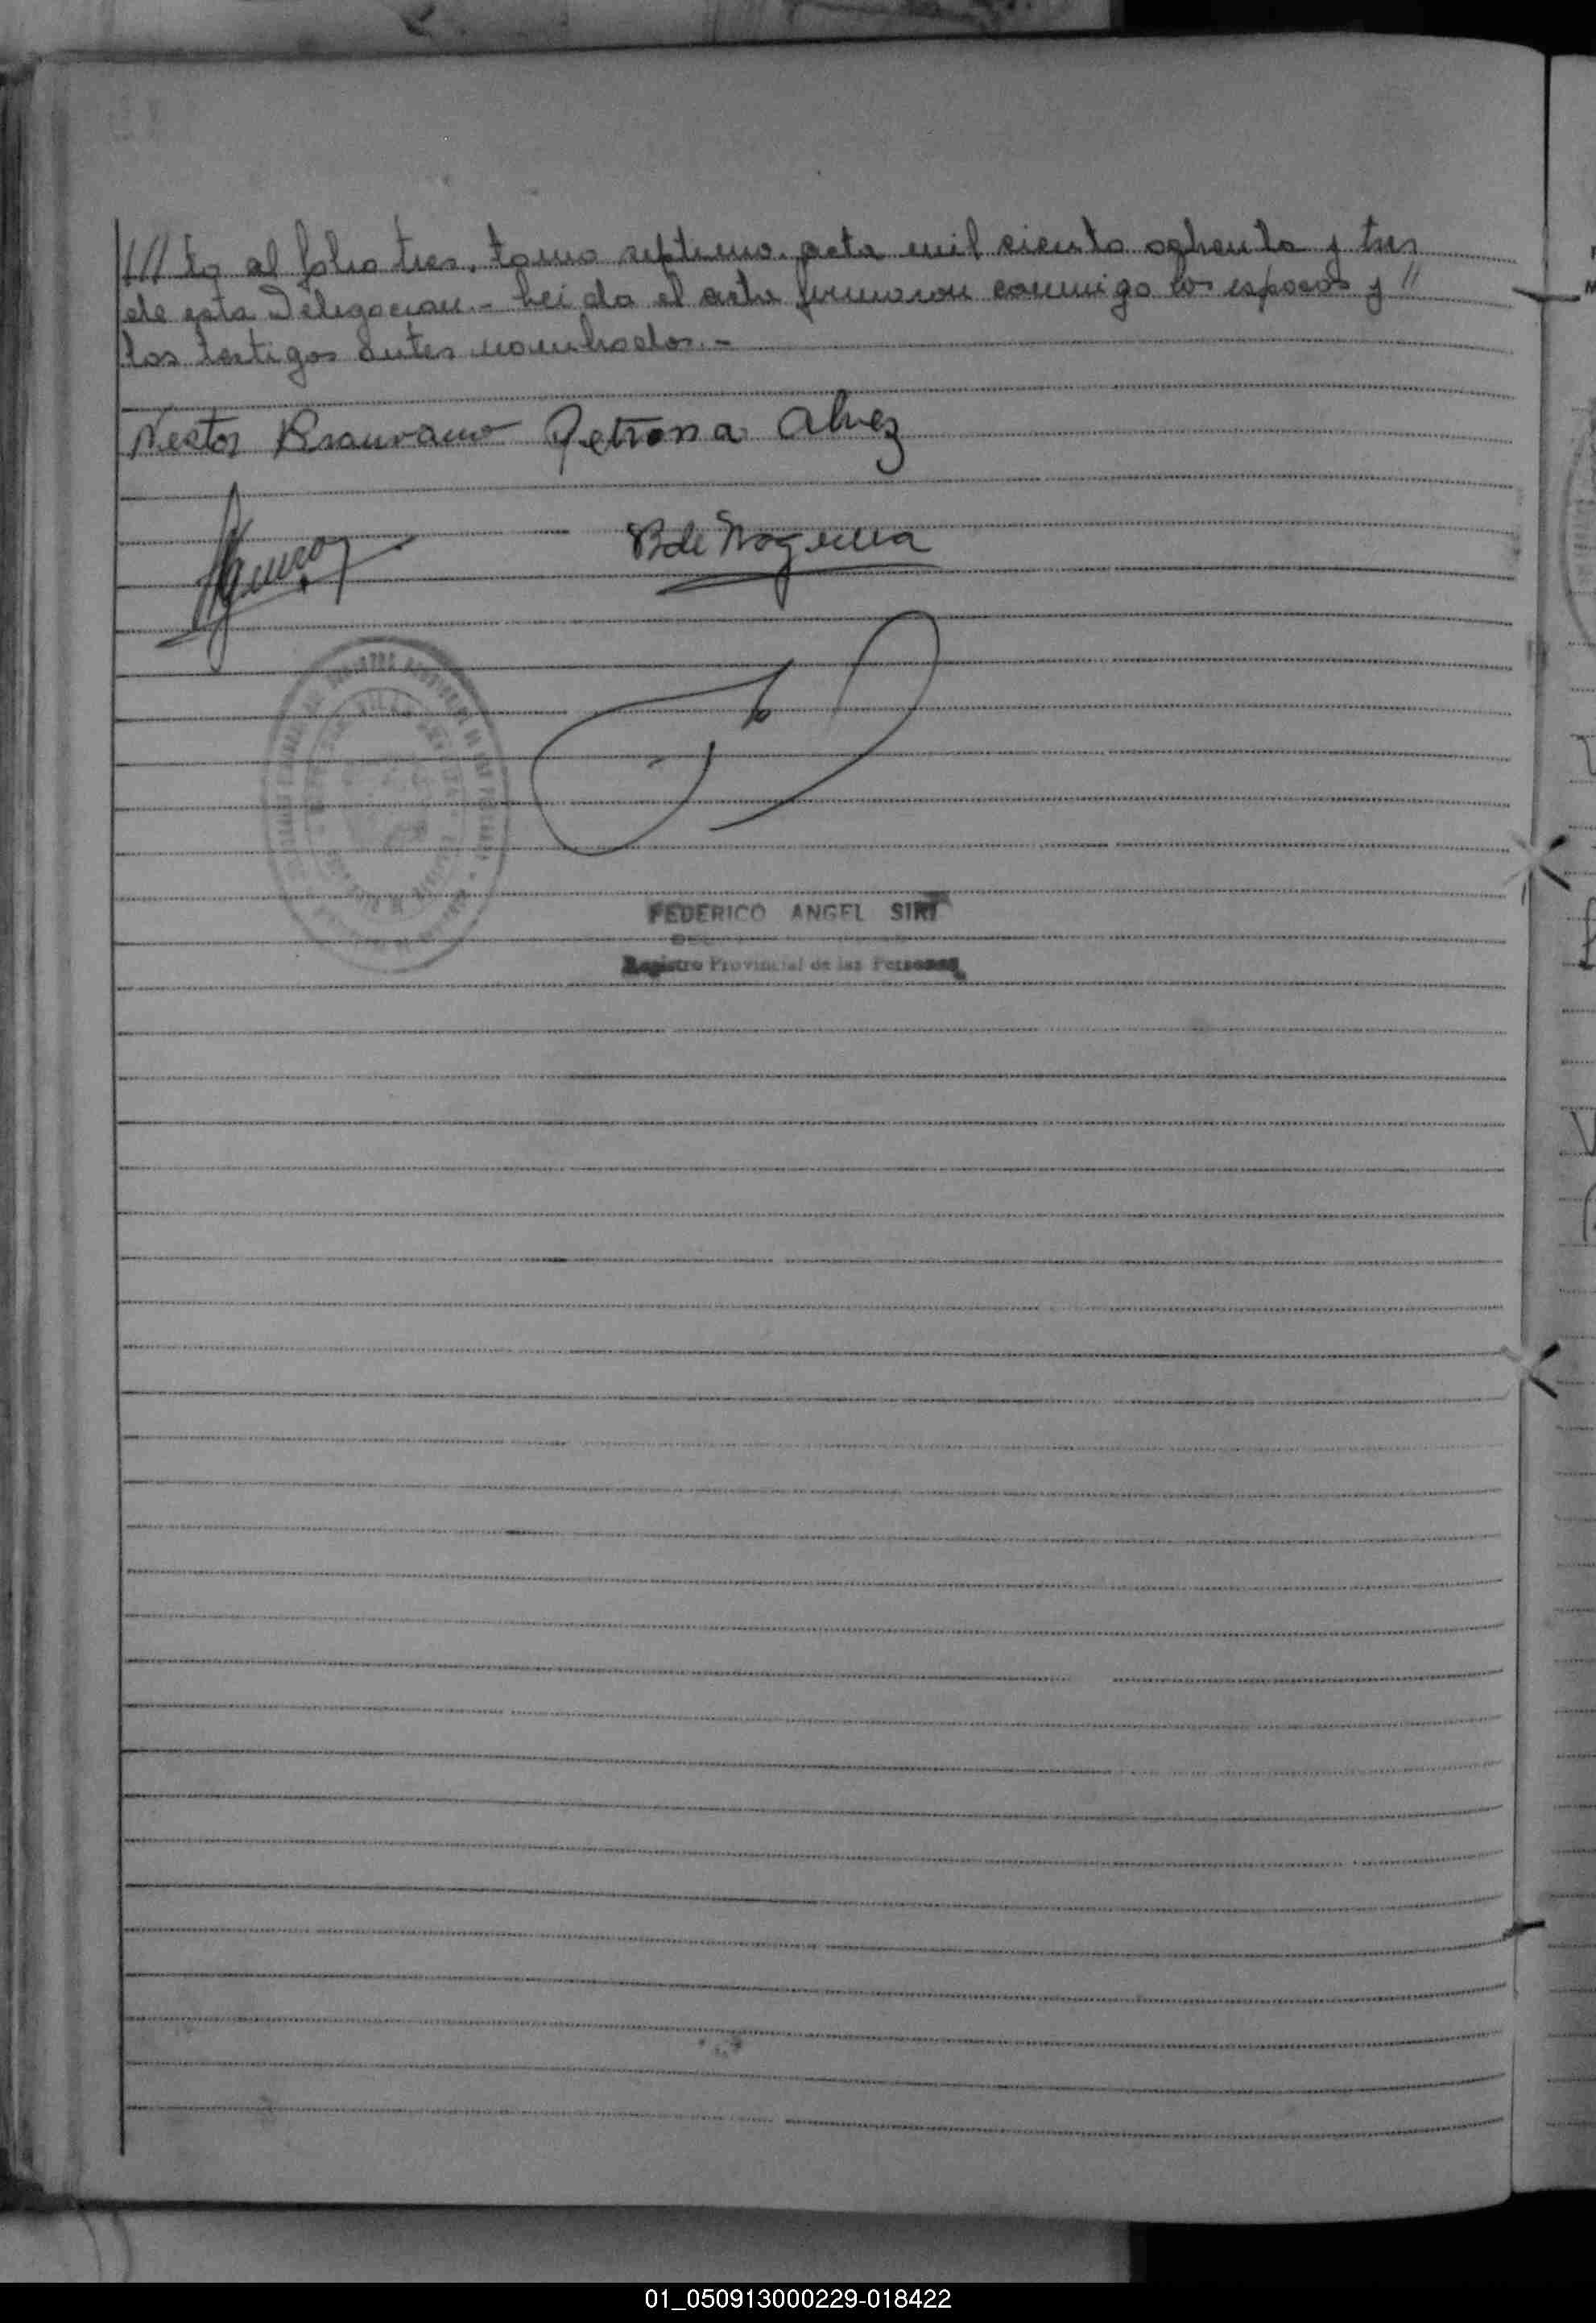 /// to al folio tres, tomo septimo, acta mil ciento ochenta y tres
de esta Delegacion.- Leida el acta firmaron conmigo los esposos y //
los testigos antes nombrados.-
Nestor Petrona Alvez
B de Noguera
FEDERICO ANGEL SIRI
Registro Provincial de las Personas
01_050913000229-018422